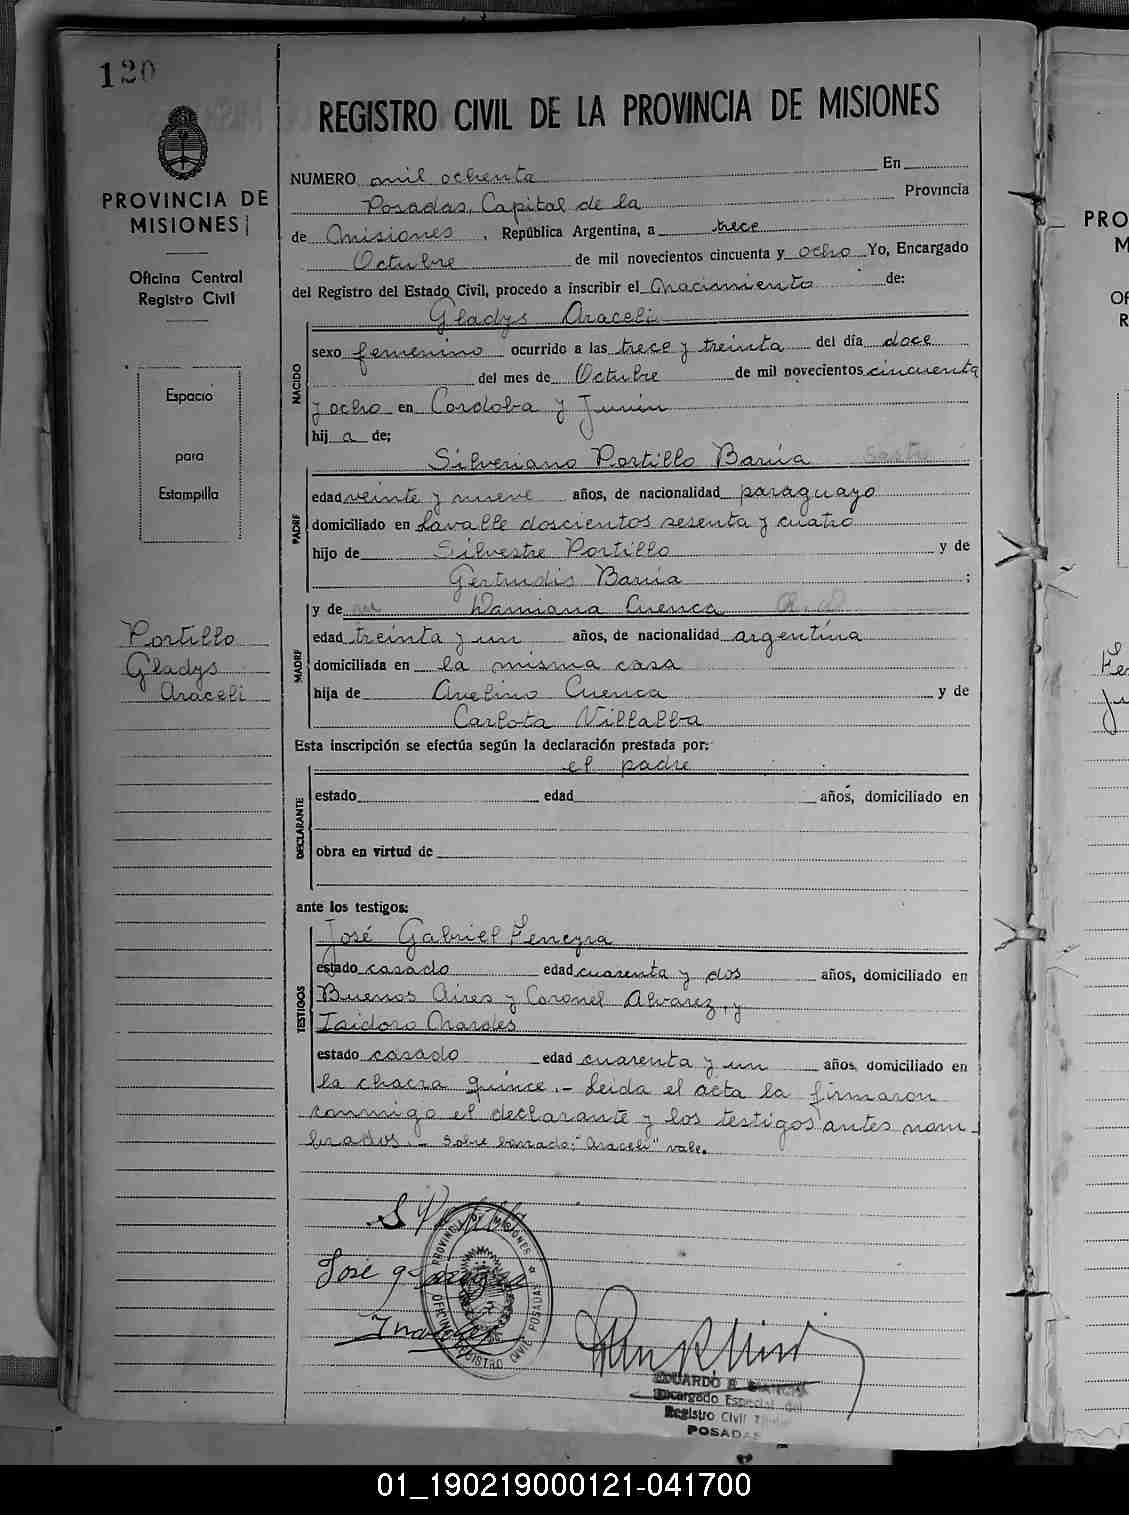 120
PROVINCIA DE
MISIONES
Oficina Central
Registro Civil
Espacio
para
Estampilla
Portillo
Gladys
Araceli
REGISTRO CIVIL DE LA PROVINCIA DE MISIONES
NUMERO mil ochenta En
Posadas, Capital de la Provincia
de Misiones, República Argentina, a trece
Octubre de mil novecientos cincuenta y ocho Yo, Encargado
del Registro del Estado Civil, procedo a inscribir el nacimiento de:
Gladys Araceli
NACIDO
sexo femenino ocurrido a las trece y treinta del día doce
del mes de Octubre de mil novecientos cincuenta
y ocho en Cordoba y Junin
hija de;
Silveriano Portillo Barúa
PADRE
edad veinte y nueve años, de nacionalidad paraguayo
domiciliado en Lavalle doscientos sesenta y cuatro
hijo de Silvestre Portillo y de
Gertrudis Barúa ;
y de Damiana Cuenca
MADRE
edad treinta y un años, de nacionalidad argentina
domiciliada en la misma casa
hija de Avelino Cuenca y de
Carlota Villalba
Esta inscripción se efectúa según la declaración prestada por:
el padre
DECLARANTE
estado edad años, domiciliado en
obra en virtud de
ante los testigos:
José Gabriel Fereyra
TESTIGOS
estado casado edad cuarenta y dos años, domiciliado en
Buenos Aires y Coronel Alvarez, y
Isidoro
estado casado edad cuarenta y un años, domiciliado en
la chacra quince.- Leida el acta la firmaron
conmigo el declarante y los testigos antes nom-
brados.- Sobre borrado: "Araceli" vale.
José
PROVINCIA DE MISIONES
OFICINA REGISTRO CIVIL POSADAS
EDUARDO R.
Encargado Especial del
Registro Civil
POSADAS
PRO
M
OF
R
01_190219000121-041700